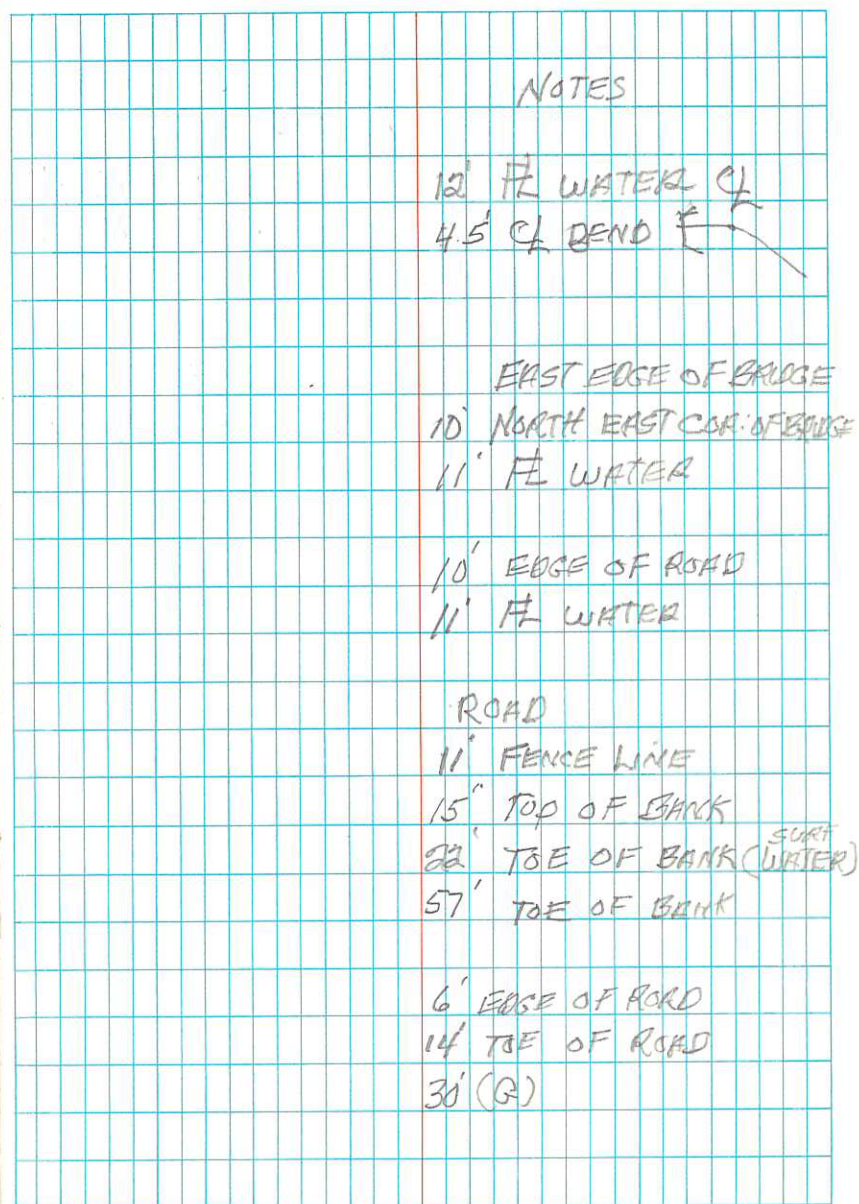 NOTES
12' FL WATER CL
4.5' CL BEND
EAST EDGE OF BRIDGE
10' NORTH EAST COR. OF BRIDGE
11' FL WATER
10' EDGE OF ROAD
11' FL WATER
ROAD
11' FENCE LINE
15' TOP OF BANK
22' TOE OF BANK (SURF WATER)
57' TOE OF BANK
6' EDGE OF ROAD
14' TOE OF ROAD
30' (G)